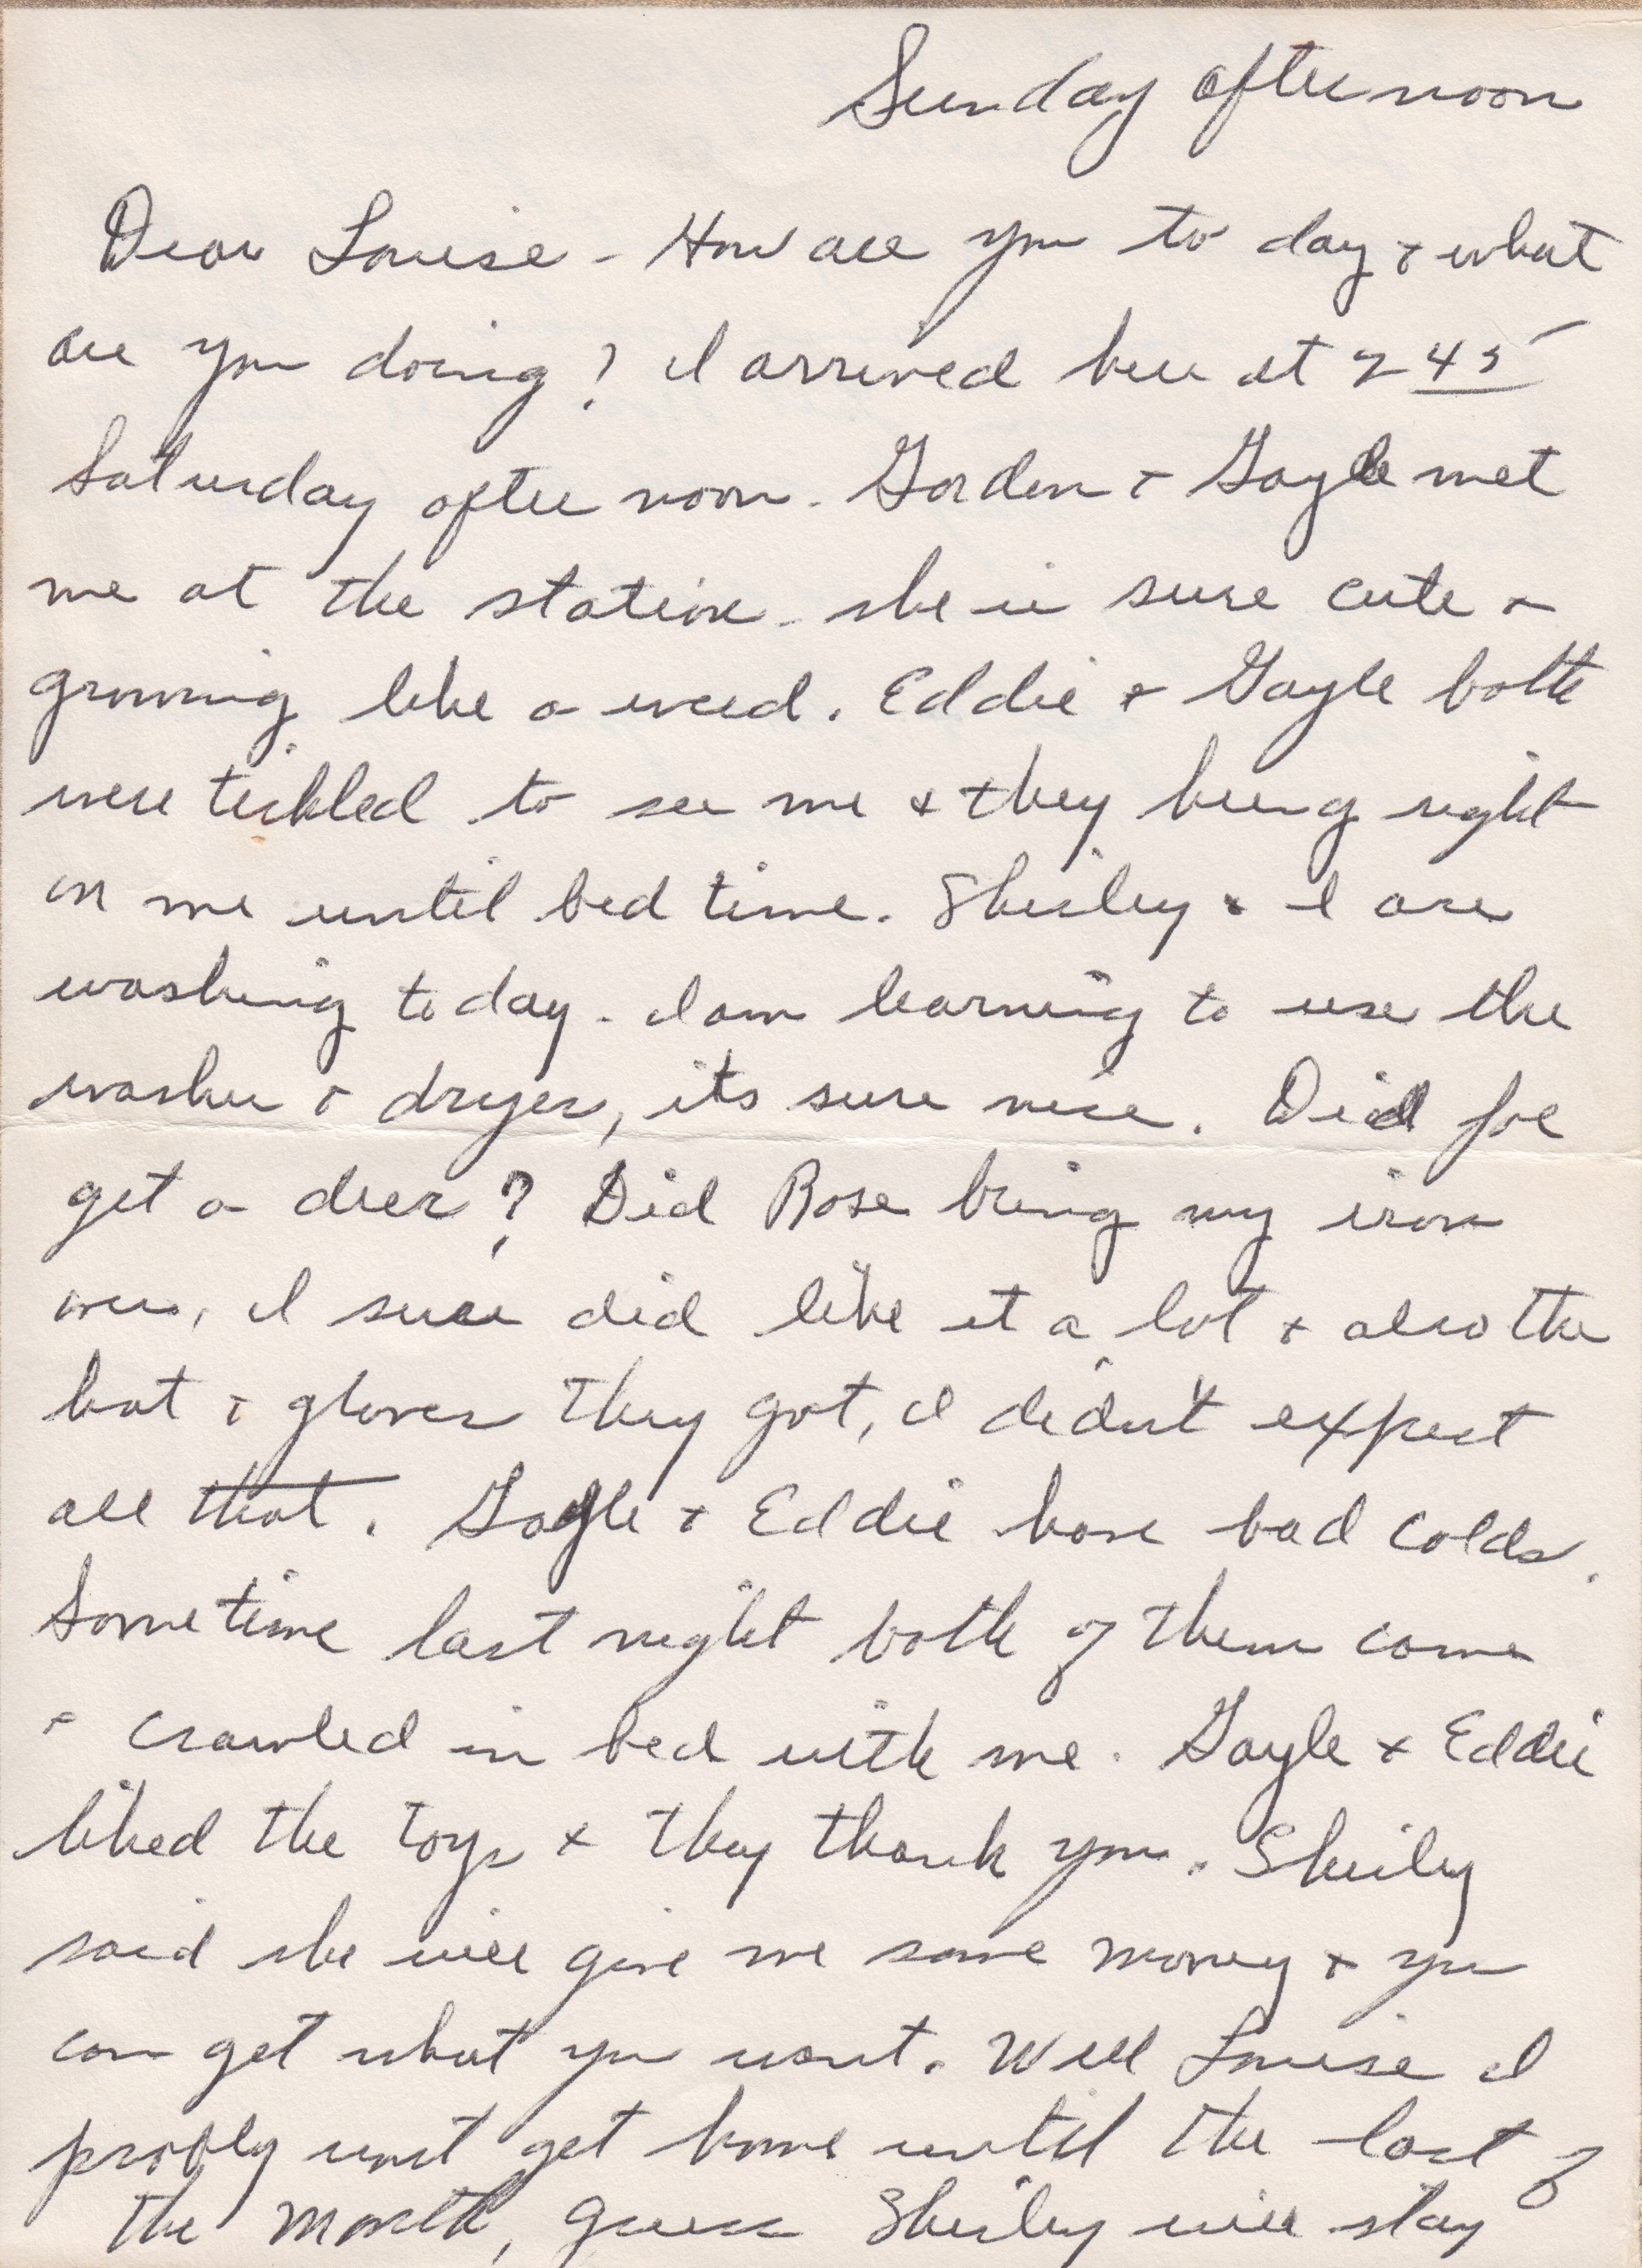 Sunday afternoon
Dear Louise - How are you to day + what
are you doing? I arrived here at 2 45
Saturday after noon. Gorden + Gayle met
me at the station - she is sure cute +
growing like a weed. Eddie + Gayle both
were tickled to see me + they hung right
on me until bed time. Shirley + I are
washing to day - I am learning to use the
washer + dryer, its sure nice. Did Joe
get a deer? Did Rose bring my iron
over, I sure did like it a lot + also the
hat + gloves they got, I didn't expect
all that. Gayle + Eddie have bad colds.
Some time last night both of them come
+ crawled in bed with me. Gayle + Eddie
liked the toys + they thank you. Shirley
said she will give me some money + you
can get what you want. Well Louise I
probly wont get home until the last of
the month, guess Shirley will stay